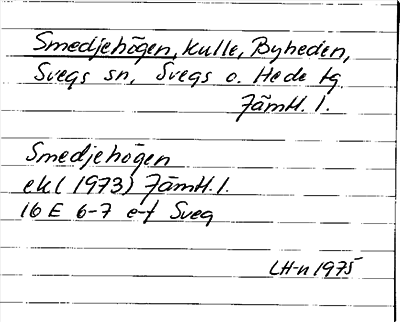 Smedjehögen, kulle, Byheden,
Svegs sn, Svegs o. Hede tg
Jämtl. l.
Smedjehögen
ekl (1973) Jämtl. l.
16 E 6-7 e-f Sveg
LH-n 1975